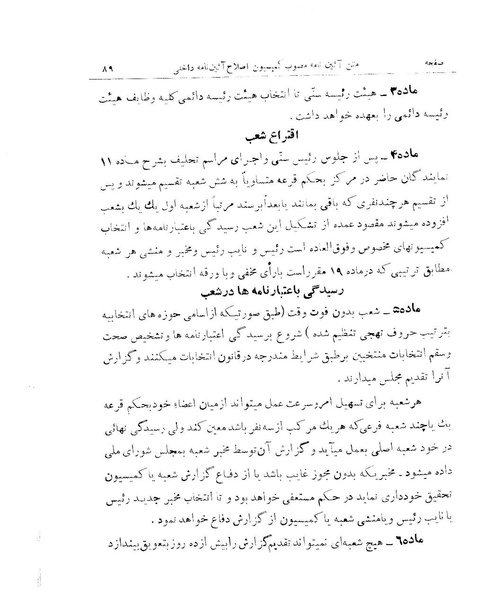 صفحه متن آئین نامه مصوب کمیسیون اصلاح آئین نامه داخلی ۸۹
ماده۳ ـ هیئت رئیسه سنّی تا انتخاب هیئت رئیسه دائمی کلیه وظایف هیئت
رئیسه دائمی را بعهده خواهد داشت .
اقتراع شعب
ماده۴ـ پس از جلوس رئیس سنّی واجرای مراسم تحلیف بشرح ماده ۱۱
نمایندگان حاضر در مرکز بحکم قرعه متساویاً به شش شعبه تقسیم میشوند و پس
از تقسیم هرچندنفری که باقی بمانند یابعداًبرسند مرتباً ازشعبه اول یك یك بشعب
افزوده میشوند مقصود عمده از تشکیل این شعب رسیدگی باعتبارنامه‌ها و انتخاب
کمیسیونهای مخصوص وفوق‌العاده است رئیس و نایب رئیس ومخبر و منشی هر شعبه
مطابق ترتیبی که درماده ۱۹ مقرراست بارأی مخفی و با ورقه انتخاب میشوند .
رسیدگی باعتبارنامه ها درشعب
ماده۵ـ شعب بدون فوت وقت (طبق صورتیکه ازاسامی حوزه های انتخابیه
بترتیب حروف تهجی تنظیم شده ) شروع برسیدگی اعتبارنامه ها و تشخیص صحت
وسقم انتخابات منتخبین برطبق شرایط مندرجه درقانون انتخابات میکنند وگزارش
آنرا تقدیم مجلس میدارند .
هرشعبه برای تسهیل امروسرعت عمل میتواند ازمیان اعضاء خودبحکم قرعه
یك یاچند شعبه فرعی که هریك مرکب ازسه‌نفر باشد معین کند ولی رسیدگی نهائی
در خود شعبه اصلی بعمل میآید و گزارش آن توسط مخبر شعبه بمجلس شورای ملی
داده میشود . مخبریکه بدون مجوز غایب باشد یا از دفاع گزارش شعبه یا کمیسیون
تحقیق خودداری نماید در حکم مستعفی خواهد بود و تا انتخاب مخبر جدید رئیس
یا نایب رئیس ویامنشی شعبه یا کمیسیون از گزارش دفاع خواهد نمود .
ماده۶ـ هیچ شعبه‌ای نمیتواند تقدیم گزارش رابیش ازده روز بتعویق بیندازد